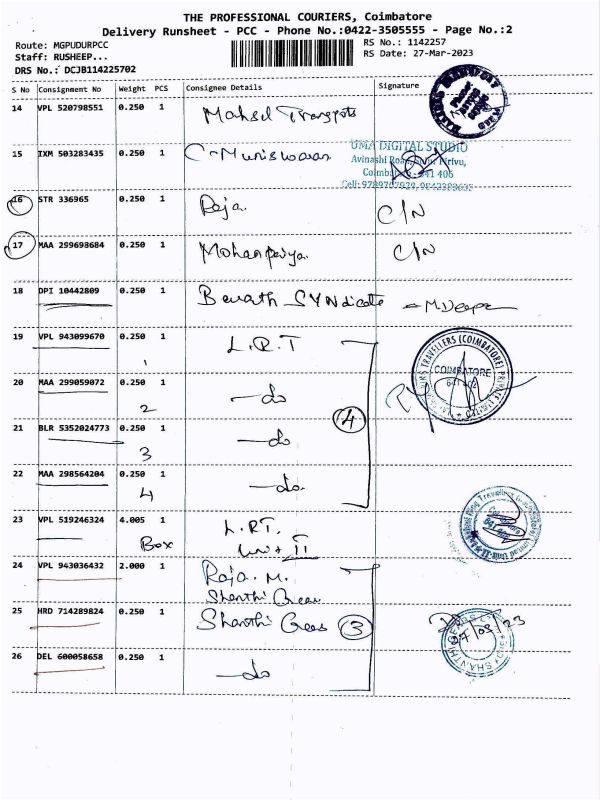 THE PROFESSIONAL COURIERS, Coimbatore
Delivery Runsheet - PCC - Phone No.:0422-3505555 - Page No.:2
Route: MGPUDURPCC
RS No.: 1142257
Staff: RUSHEEP...
RS Date: 27-Mar-2023
DRS No.: DCJB114225702
S No Consignment No Weight PCS Consignee Details Signature
14 VPL 520798551 0.250 1
15 IXM 503283435 0.250 1 C-Muniswaran
UMA DIGITAL STUDIO
Avinashi Road
16 STR 336965 0.250 1 Raja. C/N
17 MAA 299698684 0.250 1 C/N
18 DPI 10442809 0.250 1 SYNdicate
19 VPL 943099670 0.250 1 L.R.T
1
TRAVELLERS (COIMBATORE) PRIVATE LIMITED
COIMBATORE
20 MAA 299059072 0.250 1 —do
2
4
21 BLR 5352024773 0.250 1 —do
3
22 MAA 298564204 0.250 1 —do
4
23 VPL 519246324 4.005 1 L.RT.
Box
24 VPL 943036432 2.000 1 Raja. M.
Shanthi Gears
25 HRD 714289824 0.250 1 Shanthi Gears 3
26 DEL 600058658 0.250 1 —do